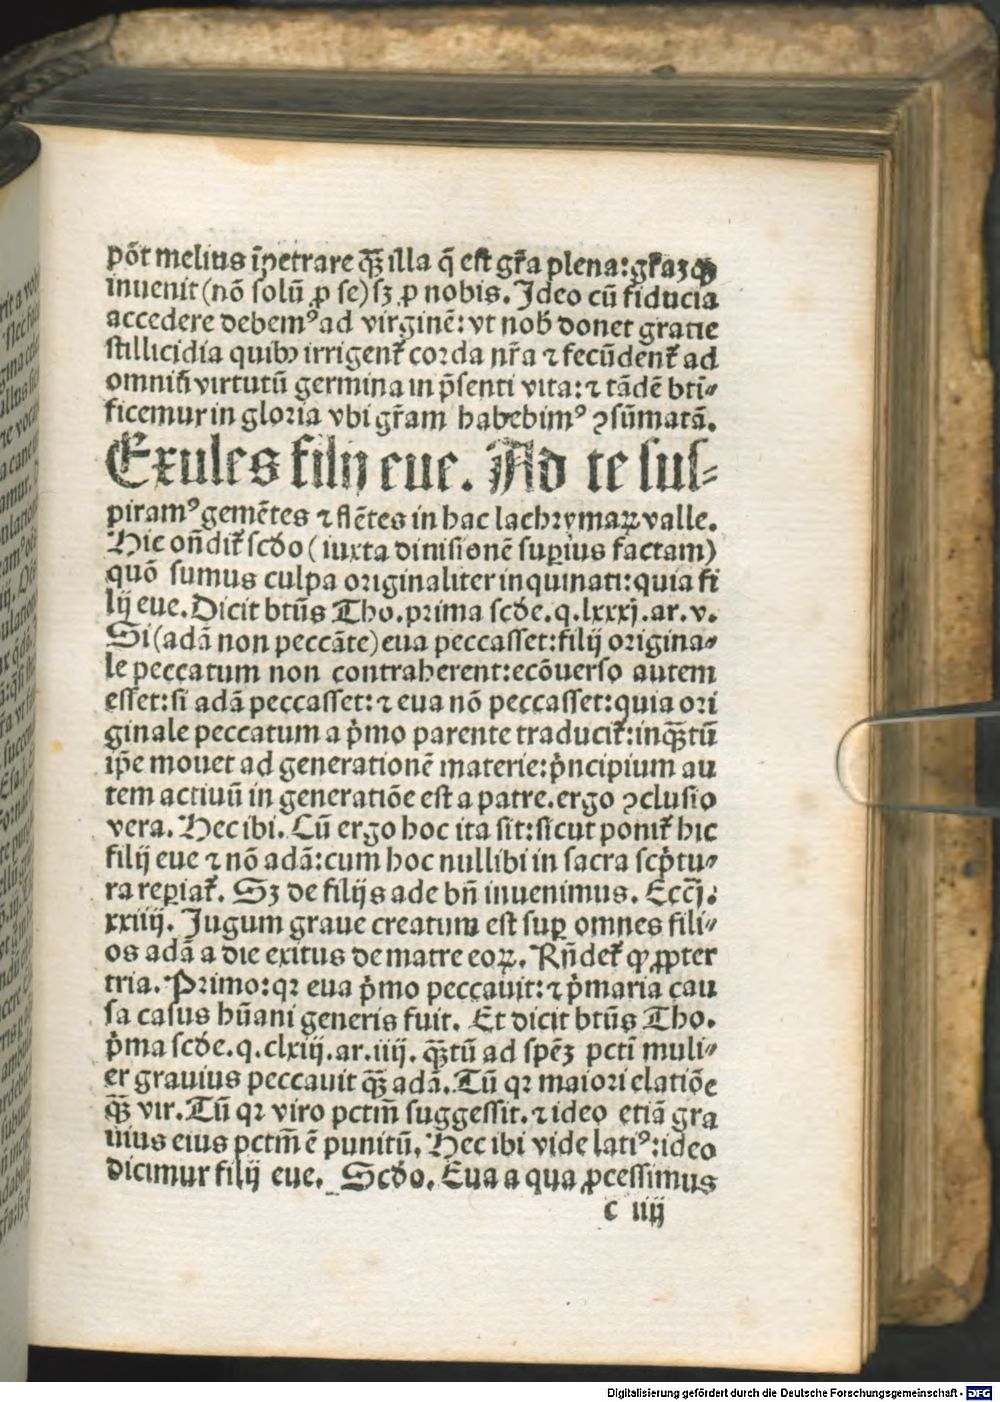 põt melius īpetrare qȝ illa q̄ est gr̄a plena: gr̄aȝ
inuenit (nõ solũ ꝓ se) sȝ ꝓ nobis. Ideo cũ fiducia
accedere debemꝰ ad virginẽ: vt nob̾ donet gratie
stillicidia quibꝫ irrigent᷑ corda nr̃a ⁊ fecũdent᷑ ad
omniũ virtutũ germina in p̃senti vita: ⁊ tãdẽ bti⸗
ficemur in gloria vbi gr̃am habebimꝰ ꝯsũmatã.
Exules filij eue. Ad te sus⸗
piramꝰ gemẽtes ⁊ flẽtes in hac lachrymaꝝ valle.
Hic oñdit᷑ scd̾o (iuxta diuisionẽ suꝑius factam)
quõ sumus culpa originaliter inquinati: quia fi
lij eue. Dicit btũs Tho. prima scd̾e. q. lxxxj. ar. v.
Si (adã non peccãte) eua peccasset: filij origina⸗
le peccatum non contraherent: ecõuerso autem
esset: si adã peccasset: ⁊ eua nõ peccasset: quia ori
ginale peccatum a p̾mo parente traducit᷑: inqȝtũ
ip̃e mouet ad generationẽ materie: p̾ncipium au
tem actiuũ in generatiõe est a patre. ergo ꝯclusio
vera. Hec ibi. Cũ ergo hoc ita sit: sicut ponit᷑ hic
filij eue ⁊ nõ adã: cum hoc nullibi in sacra scp̾tu⸗
ra reꝑiat᷑. Sȝ de filijs ade bñ inuenimus. Ecc̃j.
xxiiij. Jugum graue creatum est suꝑ omnes fili⸗
os adã a die exitus de matre eoꝝ. Rñdet᷑ ꝙ ꝓpter
tria. Primo: qꝛ eua p̾mo peccauit: ⁊ p̾maria cau
sa casus hũani generis fuit. Et dicit btũs Tho.
p̾ma scd̾e. q. clxiij. ar. iiij. qȝtũ ad spẽȝ pcti muli⸗
er grauius peccauit qȝ adã. Tũ qꝛ maiori elatiõe
qȝ vir. Tũ qꝛ viro pctm̃ suggessit. ⁊ ideo etiã gra
uius eius pctm̃ ẽ punitũ. Hec ibi vide latiꝰ: ideo
dicimur filij eue. Scd̾o. Eua a qua ꝓcessimus
c iiij
Digitalisierung gefördert durch die Deutsche Forschungsgemeinschaft - DFG